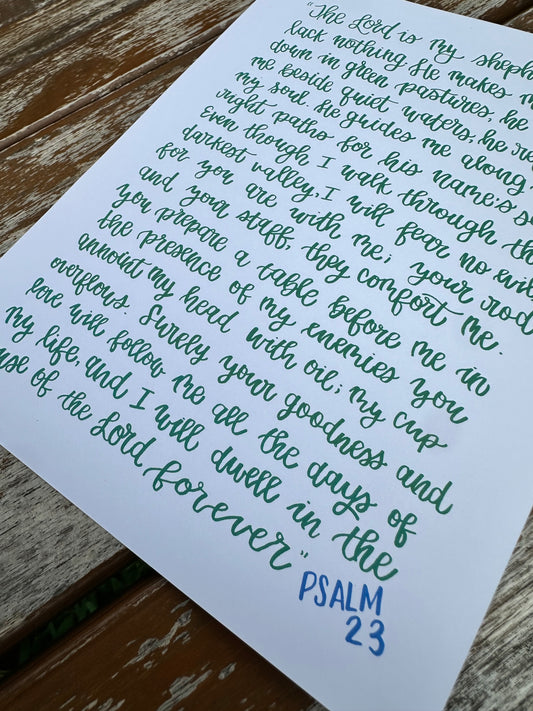 "The Lord is my sheph
lack nothing. He makes m
down in green pastures, he
me beside quiet waters, he re
my soul. He guides me along
right paths for his name's s
Even though I walk through th
darkest valley, I will fear no evil,
for you are with me; your rod
and your staff, they comfort me.
you prepare a table before me in
the presence of my enemies you
annoint my head with oil; my cup
overflows. Surely your goodness and
love will follow me all the days of
my life, and I will dwell in the
use of the Lord forever"
PSALM
23